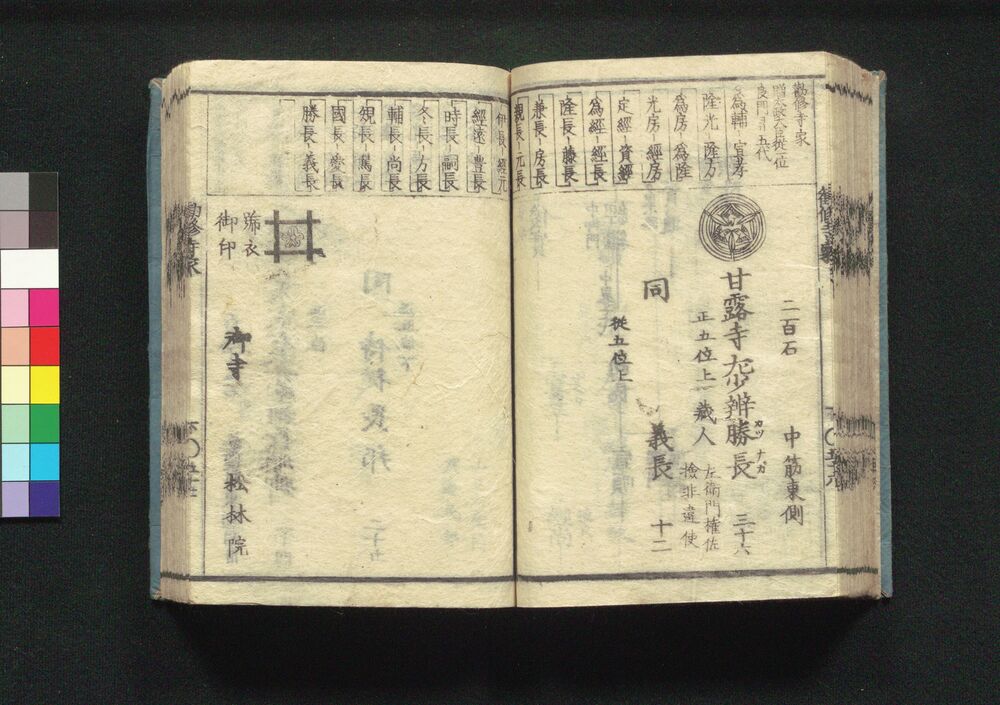 勸修寺家
贈太政大臣從一位
良門五代
爲輔 宣孝
隆光 隆方
爲房 爲隆
光房 經房
定經 資經
爲經 經長
隆長 藤長
兼長 房長
親長 元長
伊長 經元
經遠 豊長
時長 嗣長
冬長 方長
輔長 尚長
規長 篤長
國長 愛長
勝長 義長
二百石 中筋東側
甘露寺左少辨勝長 三十六
カツ ナガ
正五位上 蔵人
左衛門權佐
檢非違使
同 義長 十二
從五位上
勸修寺家
蹄衣
御印
御寺 松林院
勸修寺家